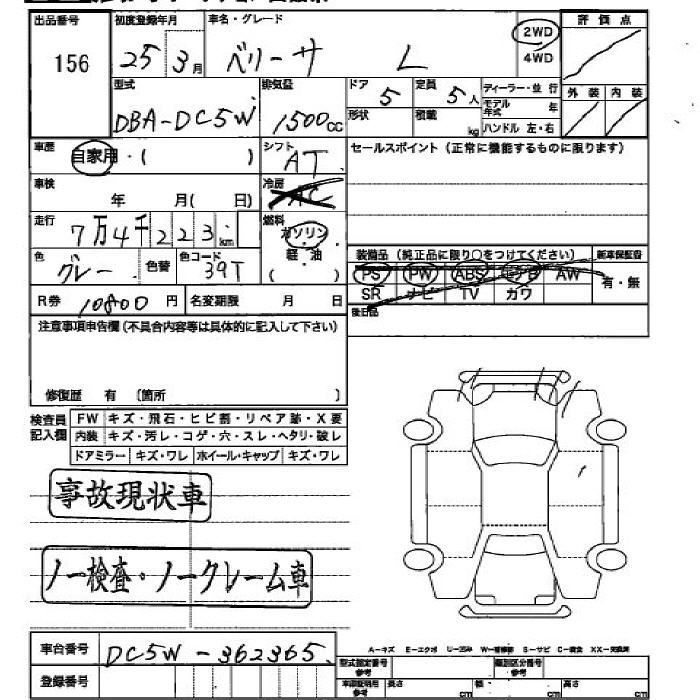 出品番号 初度登録年月 車名・グレード 評価点
156 25年3月 ベリーサ L 2WD
4WD
型式 排気量 ドア 定員 ディーラー・並行 外装 内装
DBA-DC5W 1500cc 5 5人 モデル年式 年
形状 積載 kg ハンドル 左・右
車歴 シフト セールスポイント(正常に機能するものに限ります)
自家用・( ) AT
車検 冷房
年 月( 日) AC
走行 燃料
7万4千223km ガソリン
色 色替 色コード 軽・油 装備品(純正品に限り○をつけてください) 新車保証書
グレー 39T ( ) PS PW ABS AW 有・無
R券 10800円 名変期限 月 日 SR ナビ TV カワ
注意事項申告欄(不具合内容等は具体的に記入して下さい) 後日品
修復歴 有 〔箇所 〕
検査員 FW キズ・飛石・ヒビ割・リペア跡・X要
記入欄 内装 キズ・汚レ・コゲ・穴・スレ・ヘタリ・破レ
ドアミラー キズ・ワレ ホイール・キャップ キズ・ワレ
事故現状車
ノー検査・ノークレーム車
車台番号 DC5W-362365
A-キズ E-エクボ U-凹み W-補修跡 S-サビ C-腐食 XX-交換済
登録番号 型式指定番号 参考 類別区分番号 参考
車検証明用 参考 長さ cm 幅 cm 高さ cm